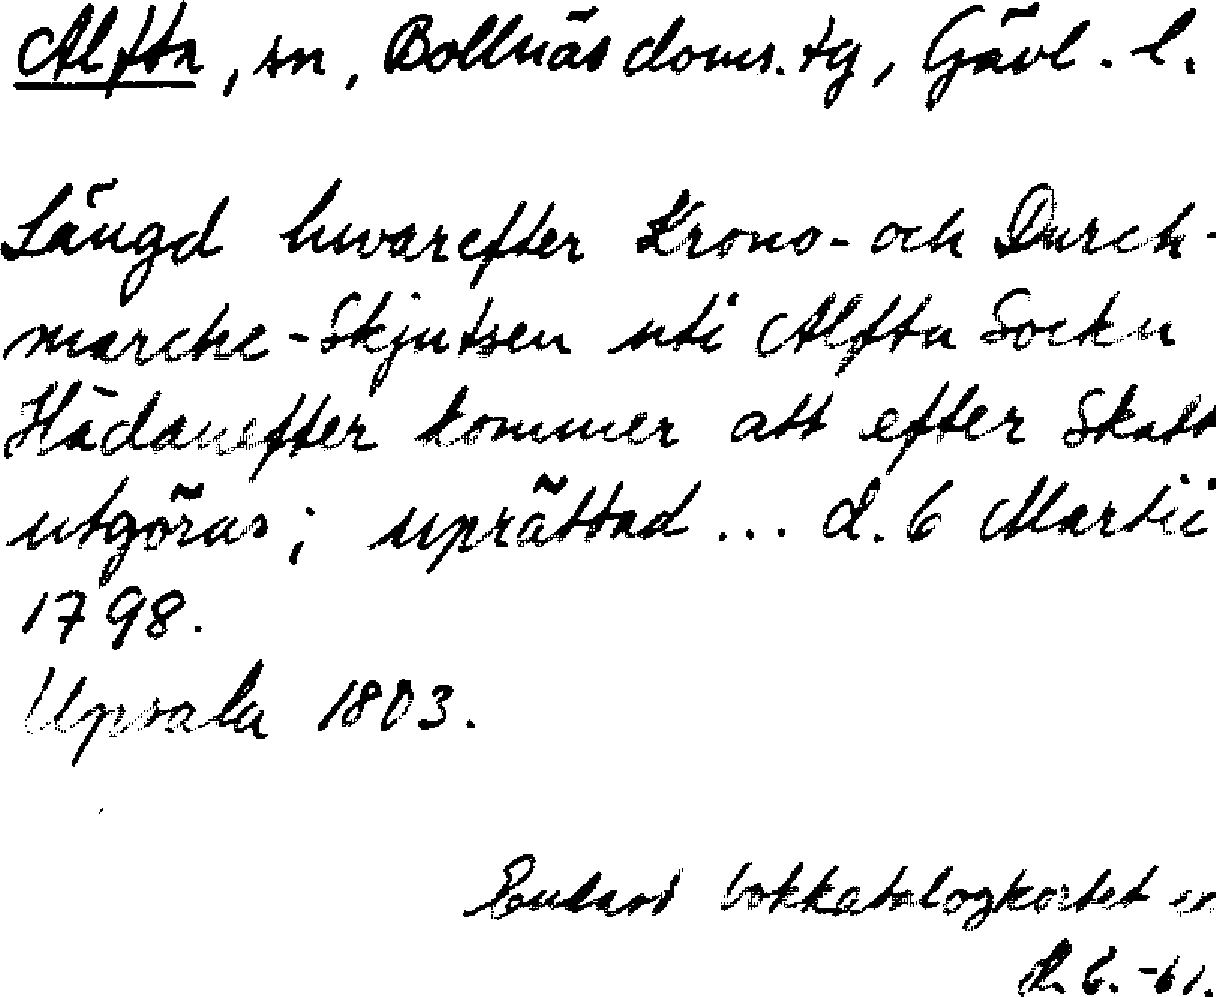 Alfta, sn, Bollnäs doms.tg, Gävl. l.
Längd hwarefter Krono- och Durch-
marche-Skjutsen uti Alfta Sockn
Hädanefter kommer att efter Skatt
utgöras; uprättad ... d. 6 Martii
1798.
Upsala 1803.
Endast bokkatalogkortet